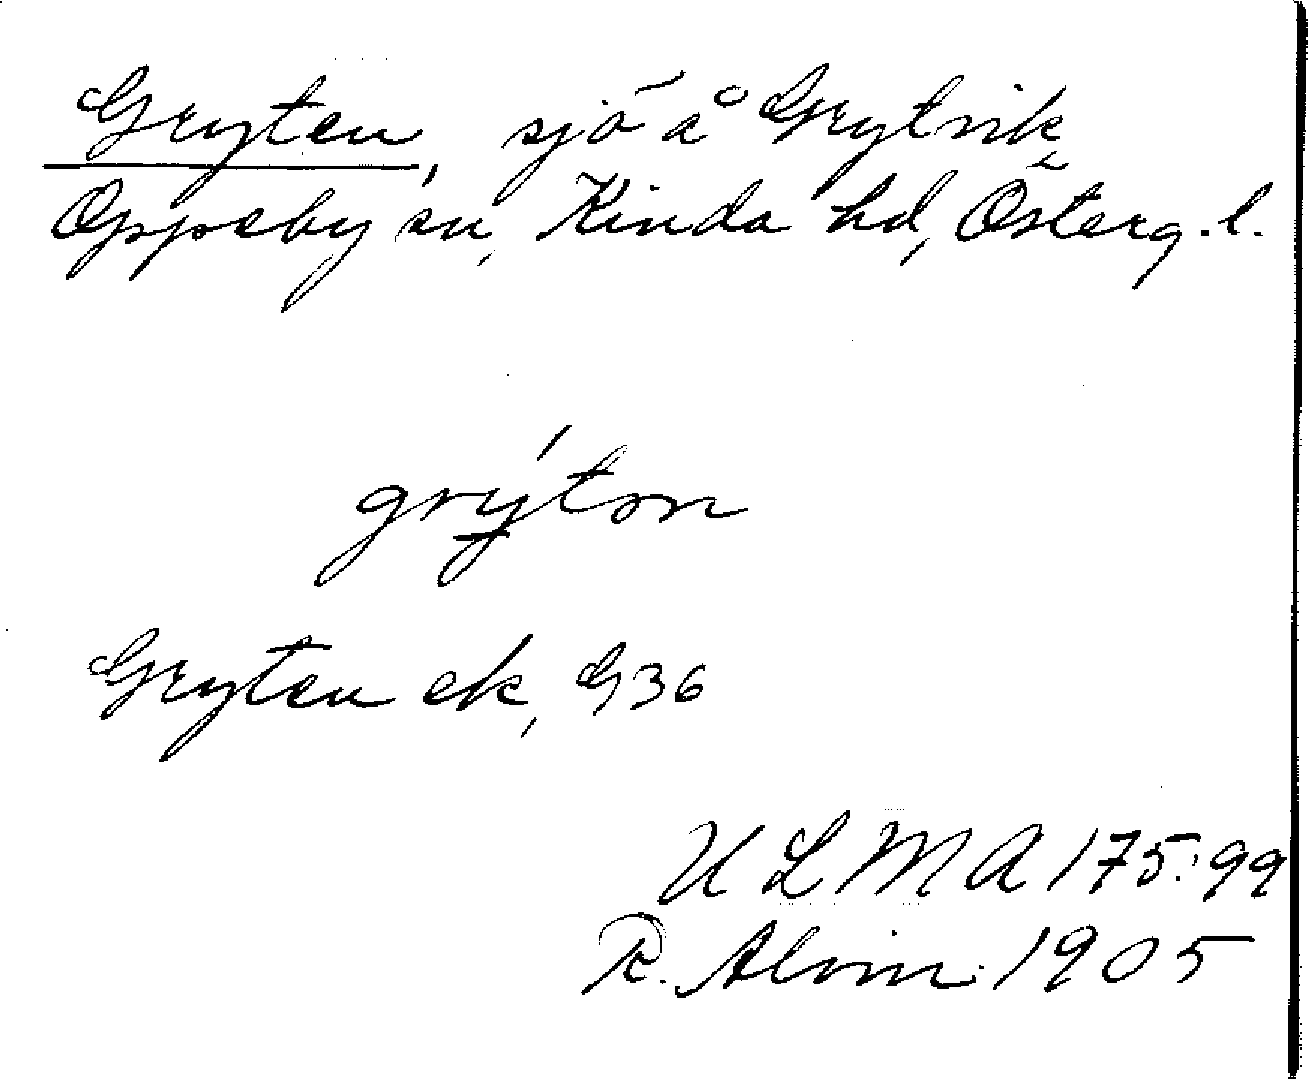 Gryten, sjö å Grytvik
Oppeby sn, Kinda hd, Österg. l.
grýton
Gryten ek, G36
ULMA 175:99
R. Alvin 1905